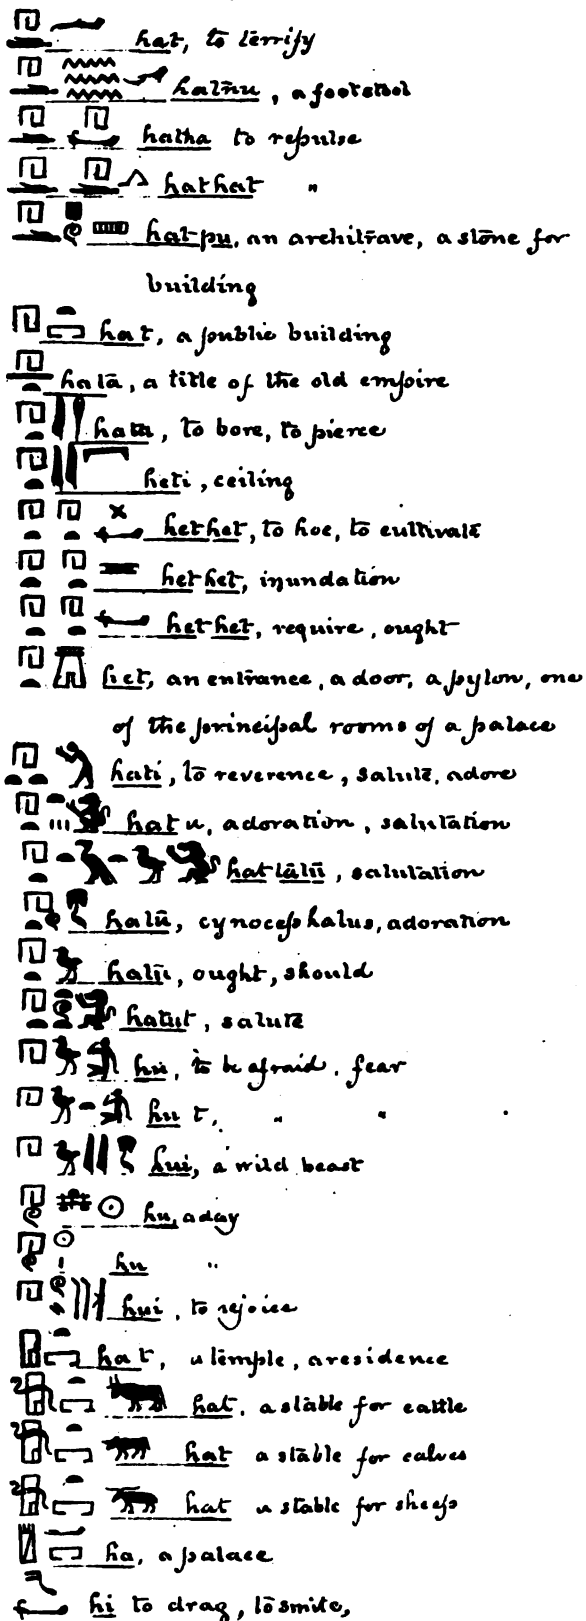 hat, to terrify
hatnu, a footstool
hatha to repulse
hathat "
hatpu, an architrave, a stone for
building
hat, a public building
hata, a title of the old empire
hatu, to bore, to pierce
heti, ceiling
hethet, to hoe, to cultivate
hethet, inundation
hethet, require, ought
het, an entrance, a door, a pylon, one
of the principal rooms of a palace
hati, to reverence, salute, adore
hatu, adoration, salutation
hattutu, salutation
hatu, cynocephalus, adoration
hatu, ought, should
hatut, salute
hu, to be afraid, fear
hut, " "
hui, a wild beast
hu, a day
hu "
hui, to rejoice
hat, a temple, a residence
hat, a stable for cattle
hat a stable for calves
hat a stable for sheep
ha, a palace
hi to drag, to smite,